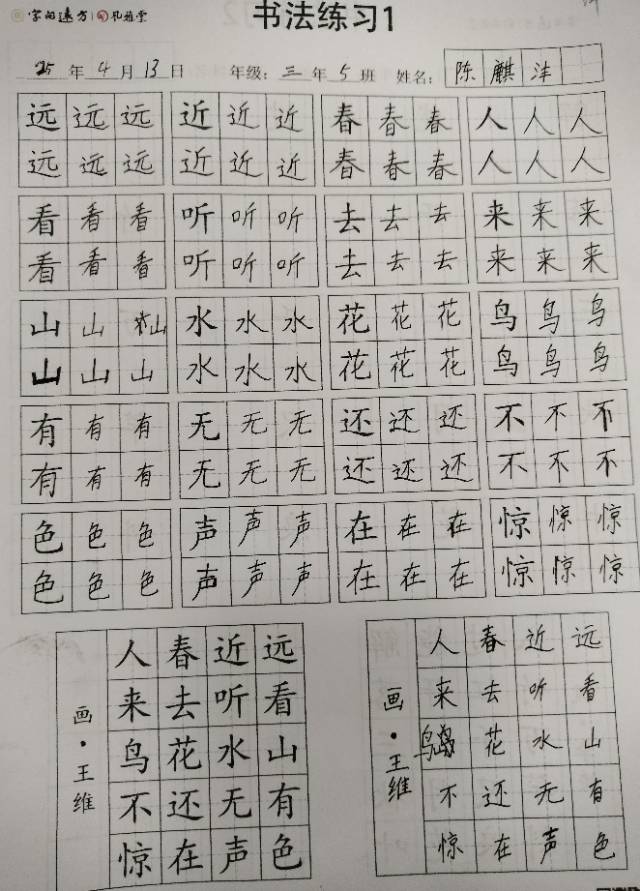 字的远方 孔苑堂 书法练习1
25年4月13日 年级:三年5班 姓名:陈麒沣
远远远 近近近 春春春 人人人
远远远 近近近 春春春 人人人
看看看 听听听 去去去 来来来
看看看 听听听 去去去 来来来
山山山 水水水 花花花 鸟鸟鸟
山山山 水水水 花花花 鸟鸟鸟
有有有 无无无 还还还 不不不
有有有 无无无 还还还 不不不
色色色 声声声 在在在 惊惊惊
色色色 声声声 在在在 惊惊惊
远看山有色
近听水无声
春去花还在
人来鸟不惊
画·王维
远看山有色
近听水无声
春去花还在
人来鸟不惊
画·王维